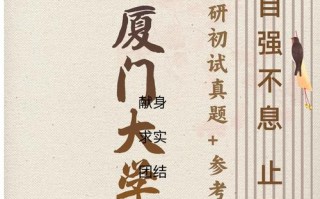 厦门大学
献身
求实
团结
研初试真题+参考
自强不息 止